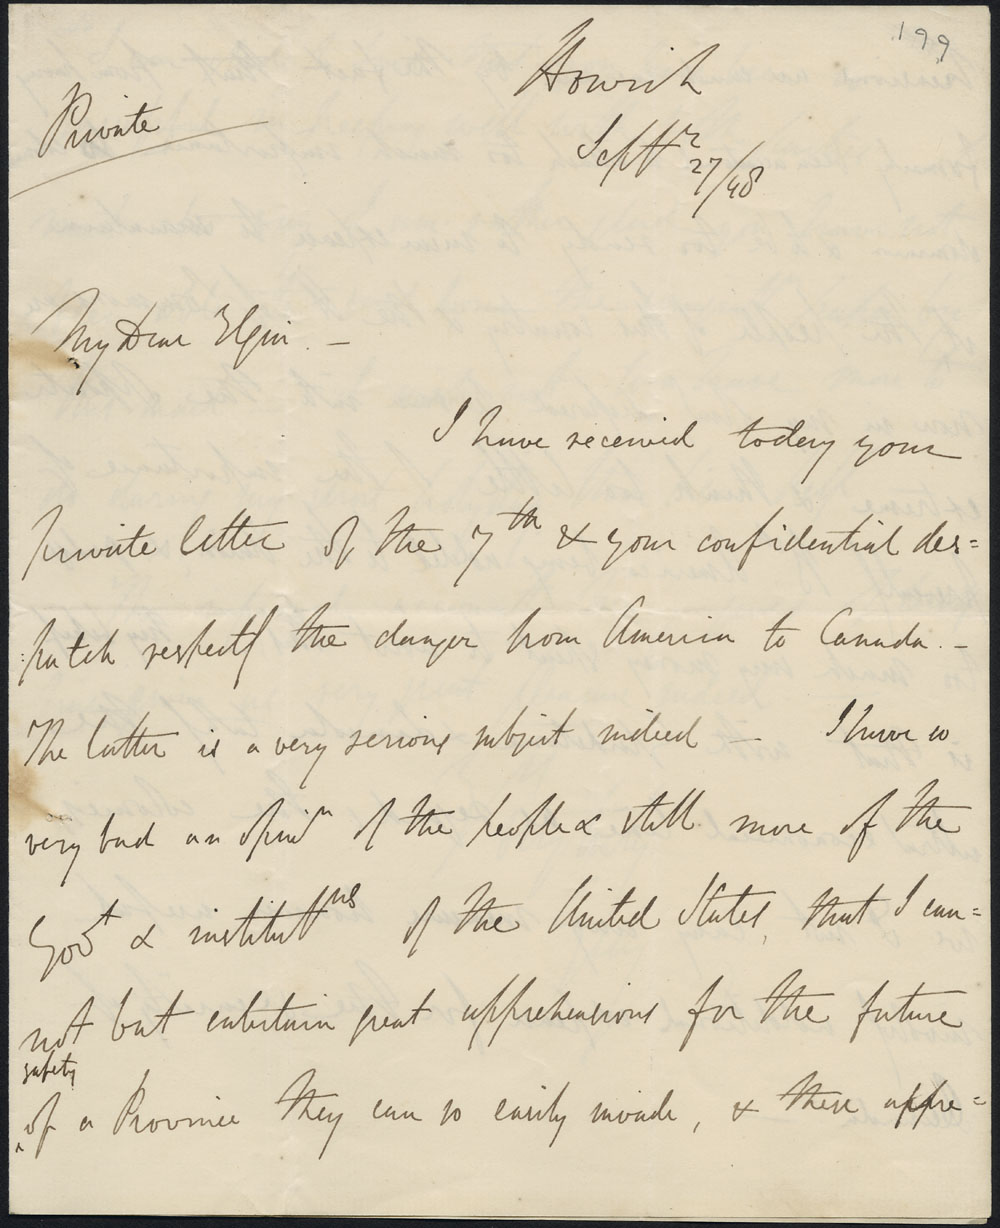 199
Howick
Septr
27/48
Private
My Dear Elgin. —
I have received today your
private letter of the 7th & your confidential des=
:patch respectg the danger from America to Canada. —
The latter is a very serious subject indeed — I have so
very bad an opinn of the people & still more of the
Govt & instituttns of the United States, that I can=
not but entertain great apprehensions for the future
safety
of a Province they can so easily invade, & these appre=